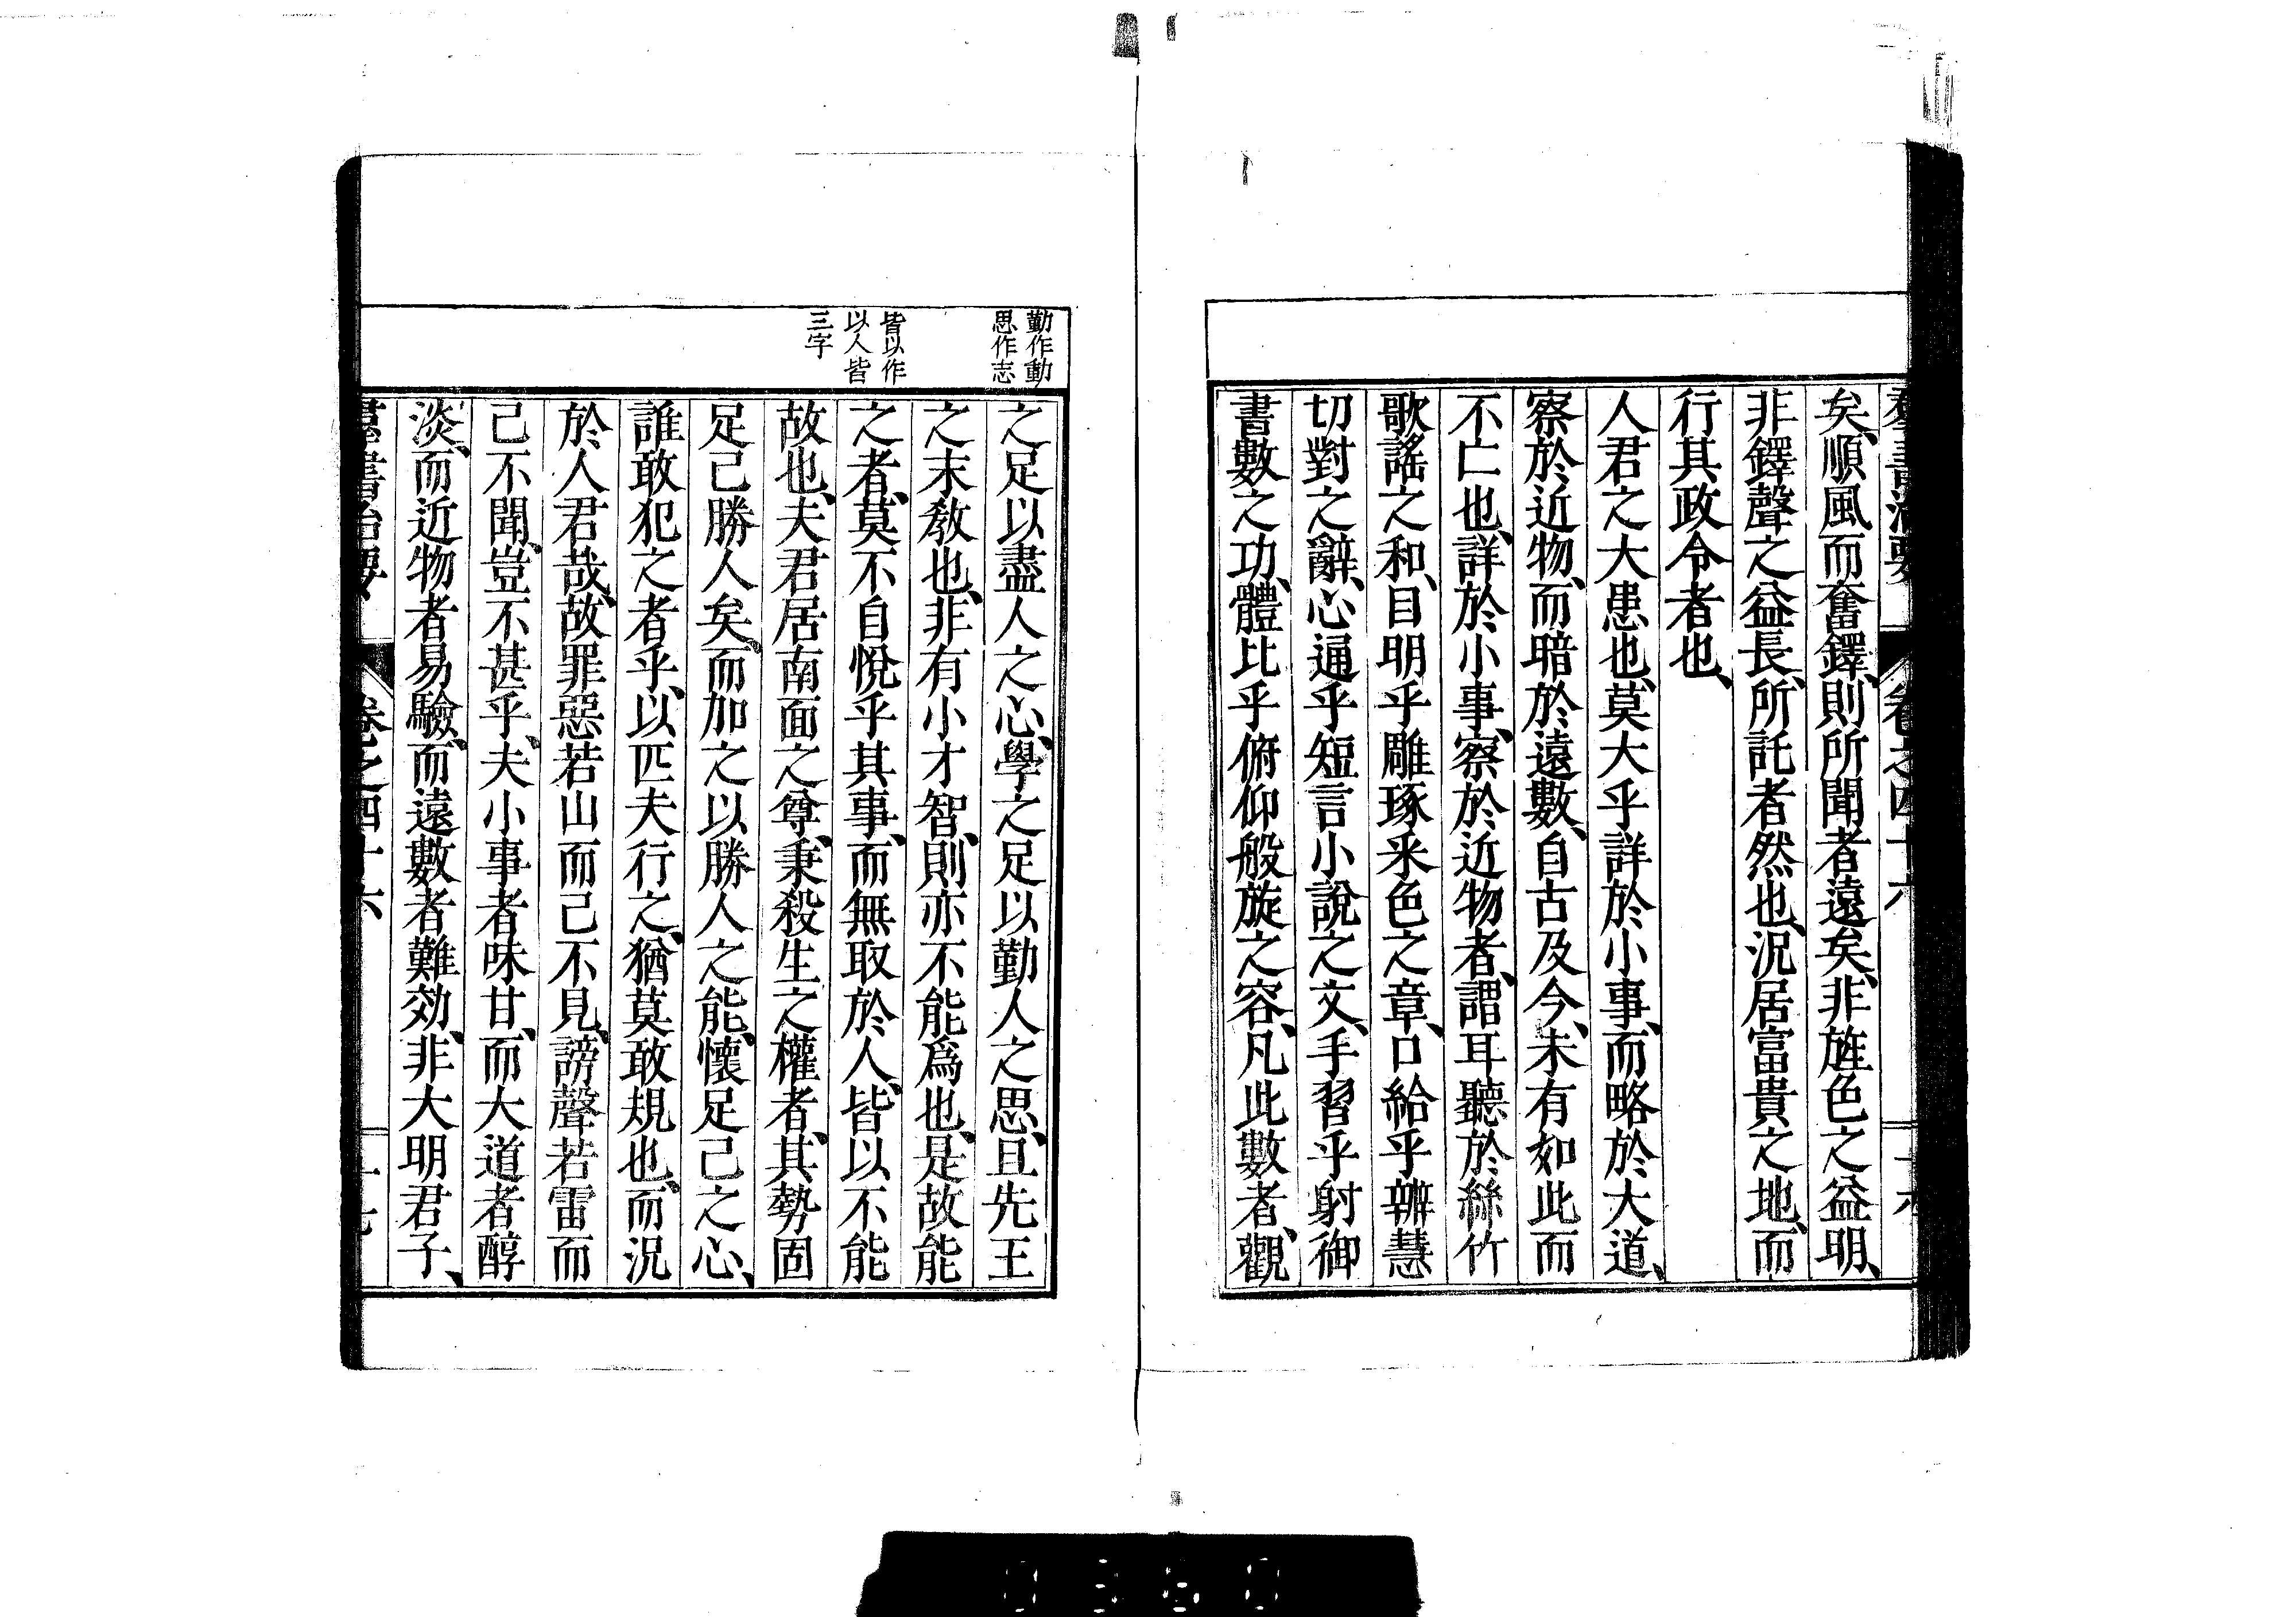 羣書治要 卷之四十六
矣、順風而奮鐸、則所聞者遠矣、非旌色之益明、
非鐸聲之益長、所託者然也、況居富貴之地、而
行其政令者也、
人君之大患也、莫大乎詳於小事、而略於大道、
察於近物、而暗於遠數、自古及今、未有如此而
不亡也、詳於小事、察於近物者、謂耳聽於絲竹
歌謠之和、目明乎雕琢采色之章、口給乎辯慧
切對之辭、心通乎短言小說之文、手習乎射御
書數之功、體比乎俯仰般旋之容、凡此數者、觀
勤作動
思作志
皆以作
以人皆
三字
之足以盡人之心、學之足以勤人之思、且先王
之末敎也、非有小才智、則亦不能爲也、是故能
之者、莫不自悅乎其事、而無取於人、皆以不能
故也、夫君居南面之尊、秉殺生之權者、其勢固
足己勝人矣、而加之以勝人之能、懷足己之心、
誰敢犯之者乎、以匹夫行之、猶莫敢規也、而況
於人君哉、故罪惡若山而己不見、謗聲若雷而
己不聞、豈不甚乎、夫小事者味甘、而大道者醇
淡、而近物者易驗、而遠數者難効、非大明君子、
羣書治要 卷之四十六